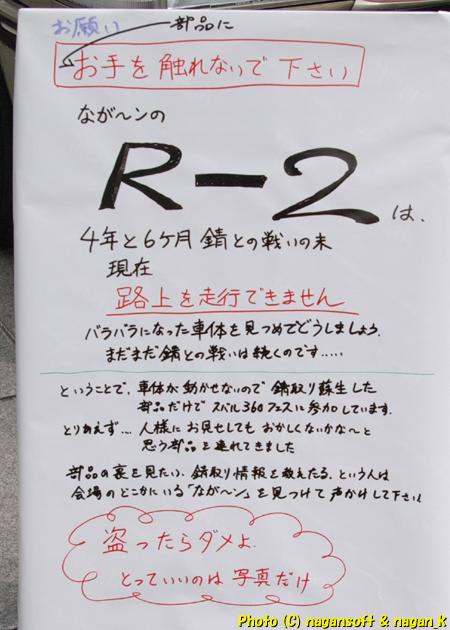 お願い
部品に
お手を触れないで下さい
なが〜ンの
R-2は、
4年と6ケ月 錆との戦いの末
現在
路上を走行できません
バラバラになった車体を見つめてどうしましょう。
まだまだ錆との戦いは続くのです.....
ということで、車体が動かせないので錆取り蘇生した
部品だけでスバル360フェスに参加しています。
とりあえず... 人様にお見せしてもおかしくないかな〜と
思う部品を連れてきました
部品の裏を見たい、錆取り情報を教えたる、という人は
会場のどこかにいる「なが〜ン」を見つけて声かけして下さい
盗ったらダメよ.
とっていいのは写真だけ
Photo (C) nagansoft & nagan_k